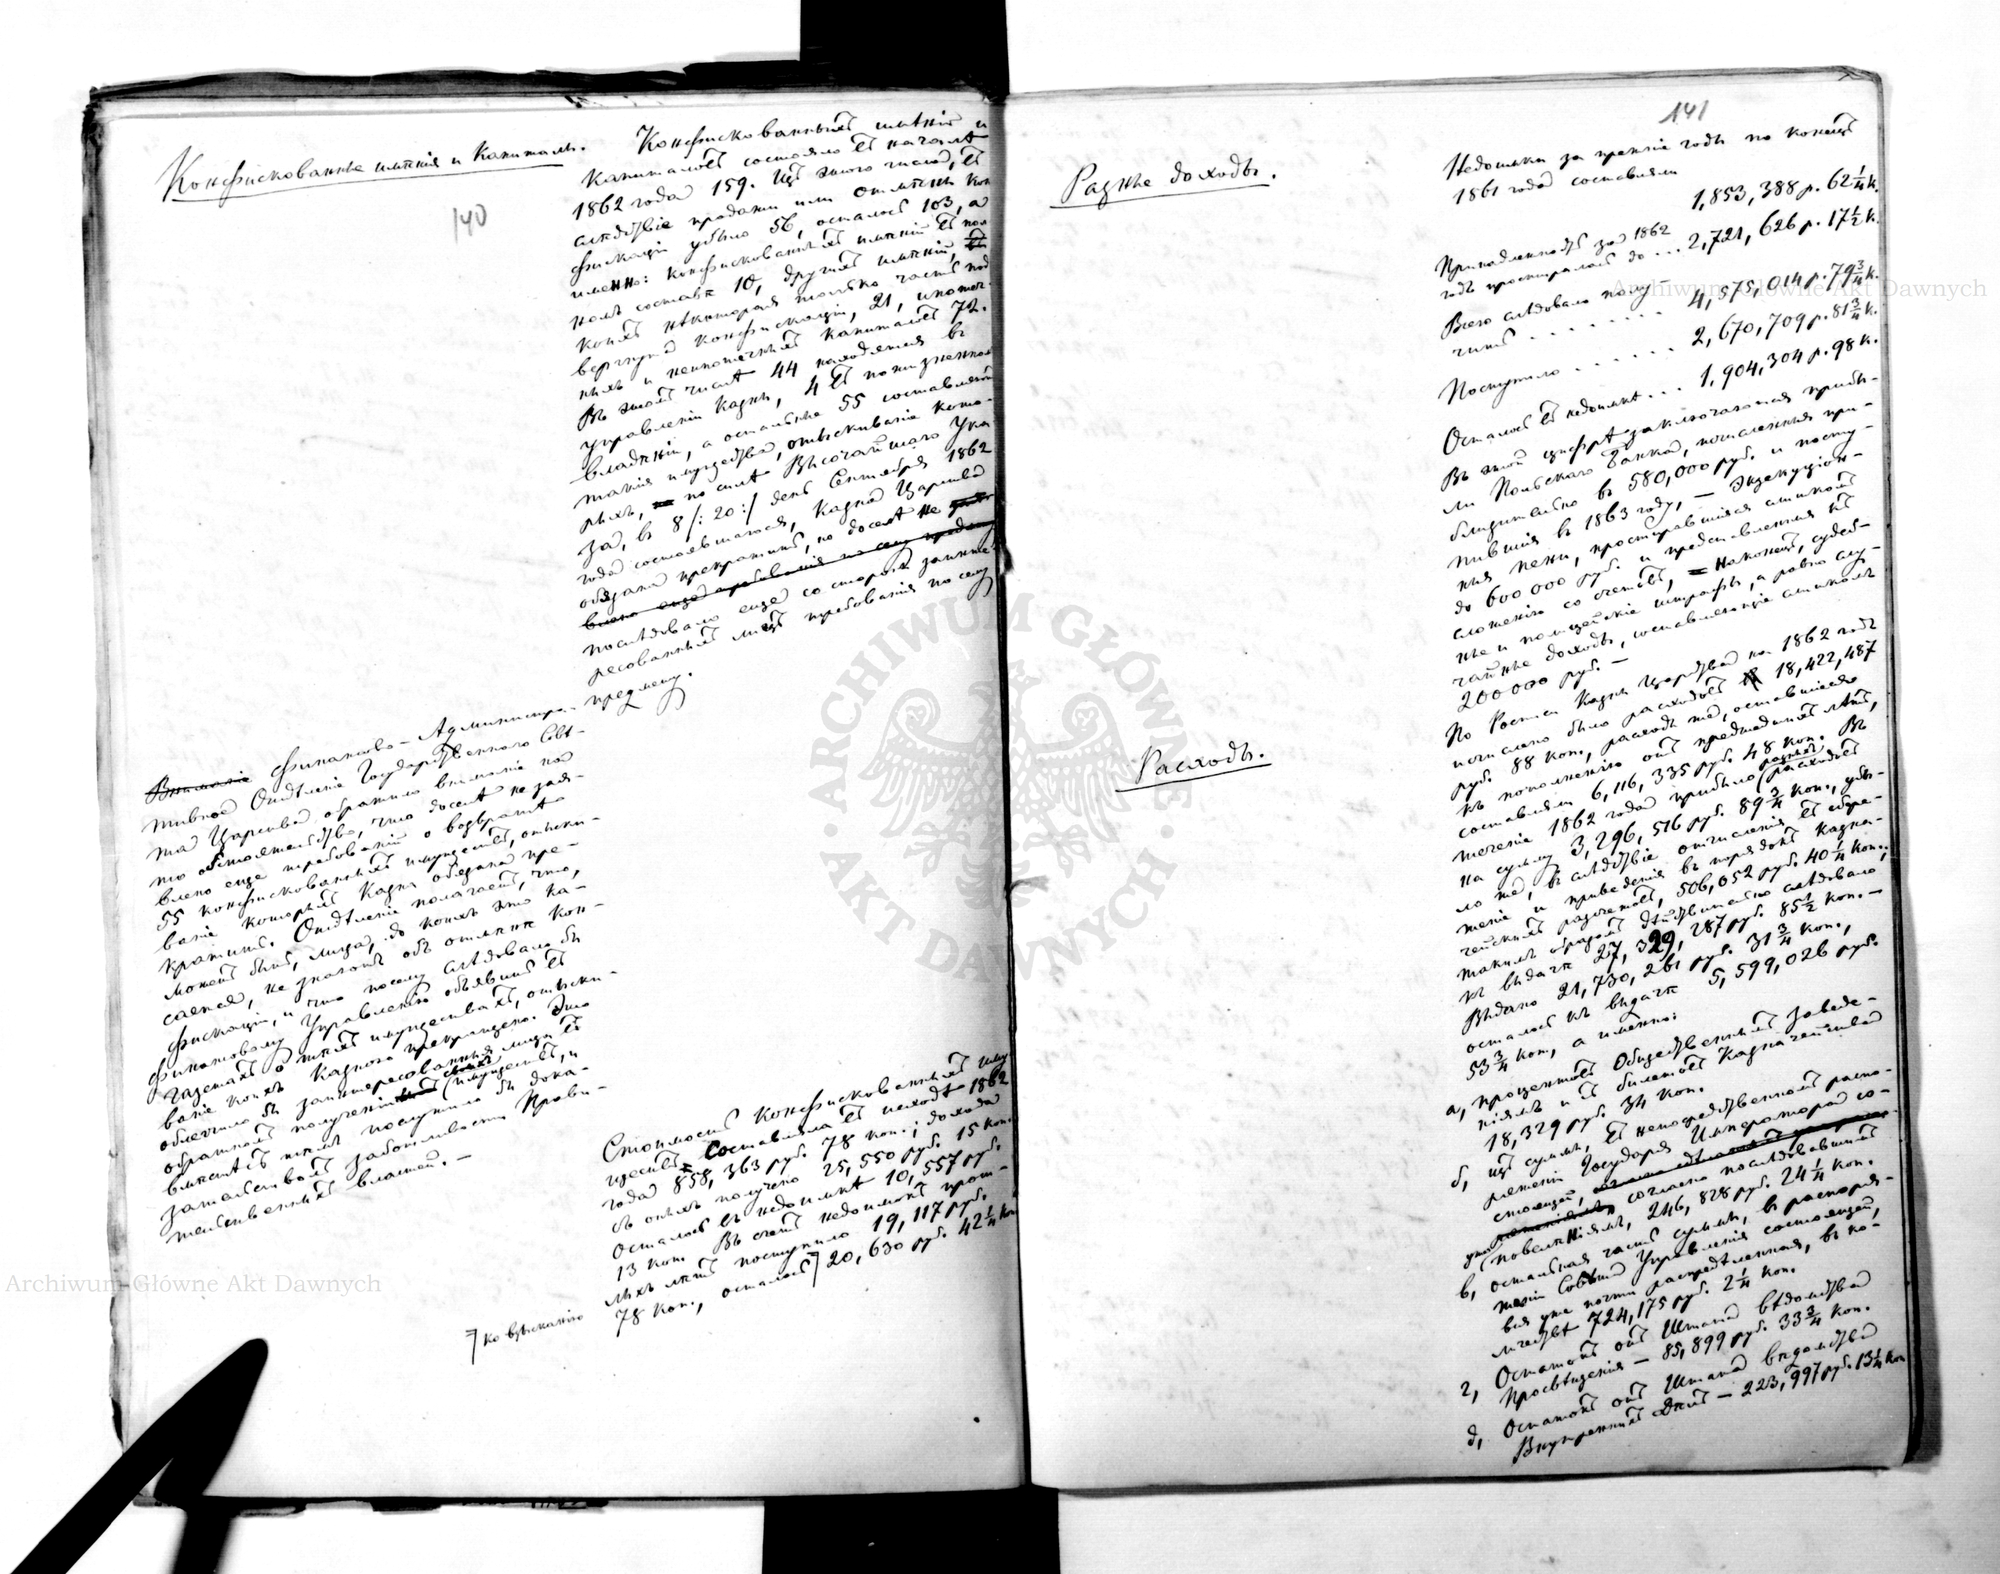 Конфискованные имѣнія и Капиталы.
140
Конфискованныхъ имѣній и
Капиталовъ состояло въ началѣ
1862 года 159. Изъ этого числа, въ
слѣдствіе продажи или отмѣны кон
фискаціи убыло 56, осталось 103, а
именно: конфискованныхъ имѣній въ пол
номъ составѣ 10, другихъ имѣній, въ
коихъ нѣкоторая только часть под
вергнута конфискаціи, 21, ипотеч-
ныхъ и неипотечныхъ капиталовъ 72.
Въ этомъ числѣ 44 находятся въ
управленіи Казны, 4 въ пожизненномъ
владѣніи, а остальные 55 составляютъ
такія имущества, отыскиваніе кото-
рыхъ, по силѣ Высочайшаго Ука
за, въ 8 /: 20 :/ день Сентября 1862
года состоявшагося, Казна Царства
обязана прекратить, но доселѣ не
влено еще требованія по сему предмету
послѣдовало еще со стороны заинте-
ресованныхъ лицъ требованія по сему
предмету.
Вниманіе Финансово-Администра-
тивное Отдѣленіе Государственнаго Совѣ-
та Царства обратило вниманіе на
то обстоятельство, что доселѣ не заяв-
влено еще требованій о возвратѣ
55 конфискованныхъ имуществъ, отыски-
ваніе которыхъ Казна обязана пре-
кратить. Отдѣленіе полагаетъ, что,
можетъ быть, лица, до коихъ это ка-
сается, не знаютъ объ отмѣнѣ кон-
фискаціи, и что посему слѣдовало бы
Финансовому Управленію объявить въ
газетахъ о тѣхъ имуществахъ, отыски-
ваніе коихъ Казною прекращено. Это
облегчило бы заинтересованнымъ лицамъ въ
обратномъ полученіи своихъ имуществъ, и
вмѣстѣ съ тѣмъ послужило бы дока-
зательствомъ заботливости Прави-
тельственныхъ властей. —
Стоимость конфискованныхъ иму
ществъ составляла въ исходѣ 1862
года 858,363 руб. 78 коп.; дохода
съ оныхъ получено 25,550 руб. 15 коп.
Осталось въ недоимкѣ 10,557 руб.
13 коп. Въ счетъ недоимокъ прош-
лыхъ лѣтъ поступило 19,117 руб.
78 коп., осталось 20,630 руб. 42 1/4 коп
ко взысканію
141
Разные доходы.
Недоимки за прежніе годы по конецъ
1861 года составляли
1,853,388 р. 62 1/4 к.
Принадлежность за 1862
годъ простиралась до ... 2,721,626 р. 17 1/2 к.
Всего слѣдовало полу-
чить . . . . . . . . 4,575,014 р. 79 3/4 к.
Поступило . . . . . . 2,670,709 р. 81 3/4 к.
Осталось въ недоимкѣ . . . 1,904,304 р. 98 к.
Въ этой цифрѣ заключаются прибы-
ли Польскаго Банка, исчисленныя при-
близительно въ 580,000 руб. и посту-
пившія въ 1863 году, — Экзекуціон-
ныя пени, простиравшіяся слишкомъ
до 600 000 руб. и представленныя къ
сложенію со счетовъ, — наконецъ, судеб-
ные и полицейскіе штрафы, а равно слу-
чайные доходы, составляющіе слишкомъ
200 000 руб. —
Расходы.
По Росписи Казны Царства на 1862 годъ
исчислено было расходовъ 18,422,487
руб. 88 коп., расходы же, оставшіеся
къ пополненію отъ предыдущихъ лѣтъ,
составляли 6,116,335 руб. 48 коп. Въ
теченіе 1862 года прибыло разныхъ расходовъ
на сумму 3,296,516 руб. 89 3/4 коп., убы-
ло же, въ слѣдствіе отчисленія въ сбере-
женіе и приведенія въ порядокъ Казна-
чейскихъ разсчетовъ, 506,052 руб. 40 1/4 коп.,
такимъ образомъ дѣйствительно слѣдовало
къ выдачѣ 27,329,287 руб. 85 1/2 коп. —
Выдано 21,730,261 руб. 31 3/4 коп.,
осталось къ выдачѣ 5,599,026 руб.
53 3/4 коп., а именно:
а, процентовъ Общественнымъ заведе-
ніямъ и съ билетовъ Казначейства
18,329 руб. 34 коп.
б, изъ суммы, въ непосредственномъ распо-
ряженіи Государя Императора со-
стоящей, согласно послѣдовавшимъ
повелѣніямъ, 246,828 руб. 24 1/4 коп.
в, остальная часть суммы, въ распоря-
женіи Совѣта Управленія состоящей,
вся уже почти распредѣленная, въ ко-
личествѣ 724,175 руб. 2 1/4 коп.
г, Остатокъ отъ Штата вѣдомства
Просвѣщенія — 85,899 руб. 33 3/4 коп.
д, Остатокъ отъ Штата вѣдомства
Внутреннихъ Дѣлъ — 223,997 руб. 13 1/4 коп
Archiwum Główne Akt Dawnych
Archiwum Główne Akt Dawnych
ARCHIWUM GŁÓWNE
AKT DAWNYCH